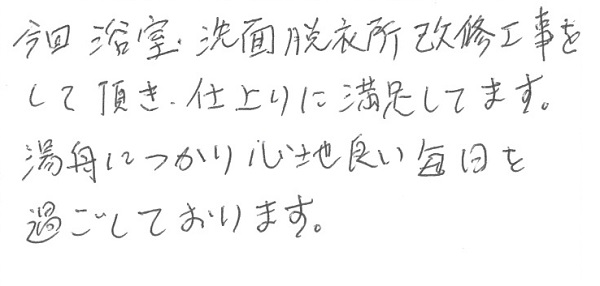 今回 浴室・洗面脱衣所改修工事を
して頂き、仕上りに満足してます。
湯舟につかり心地良い毎日を
過ごしております。